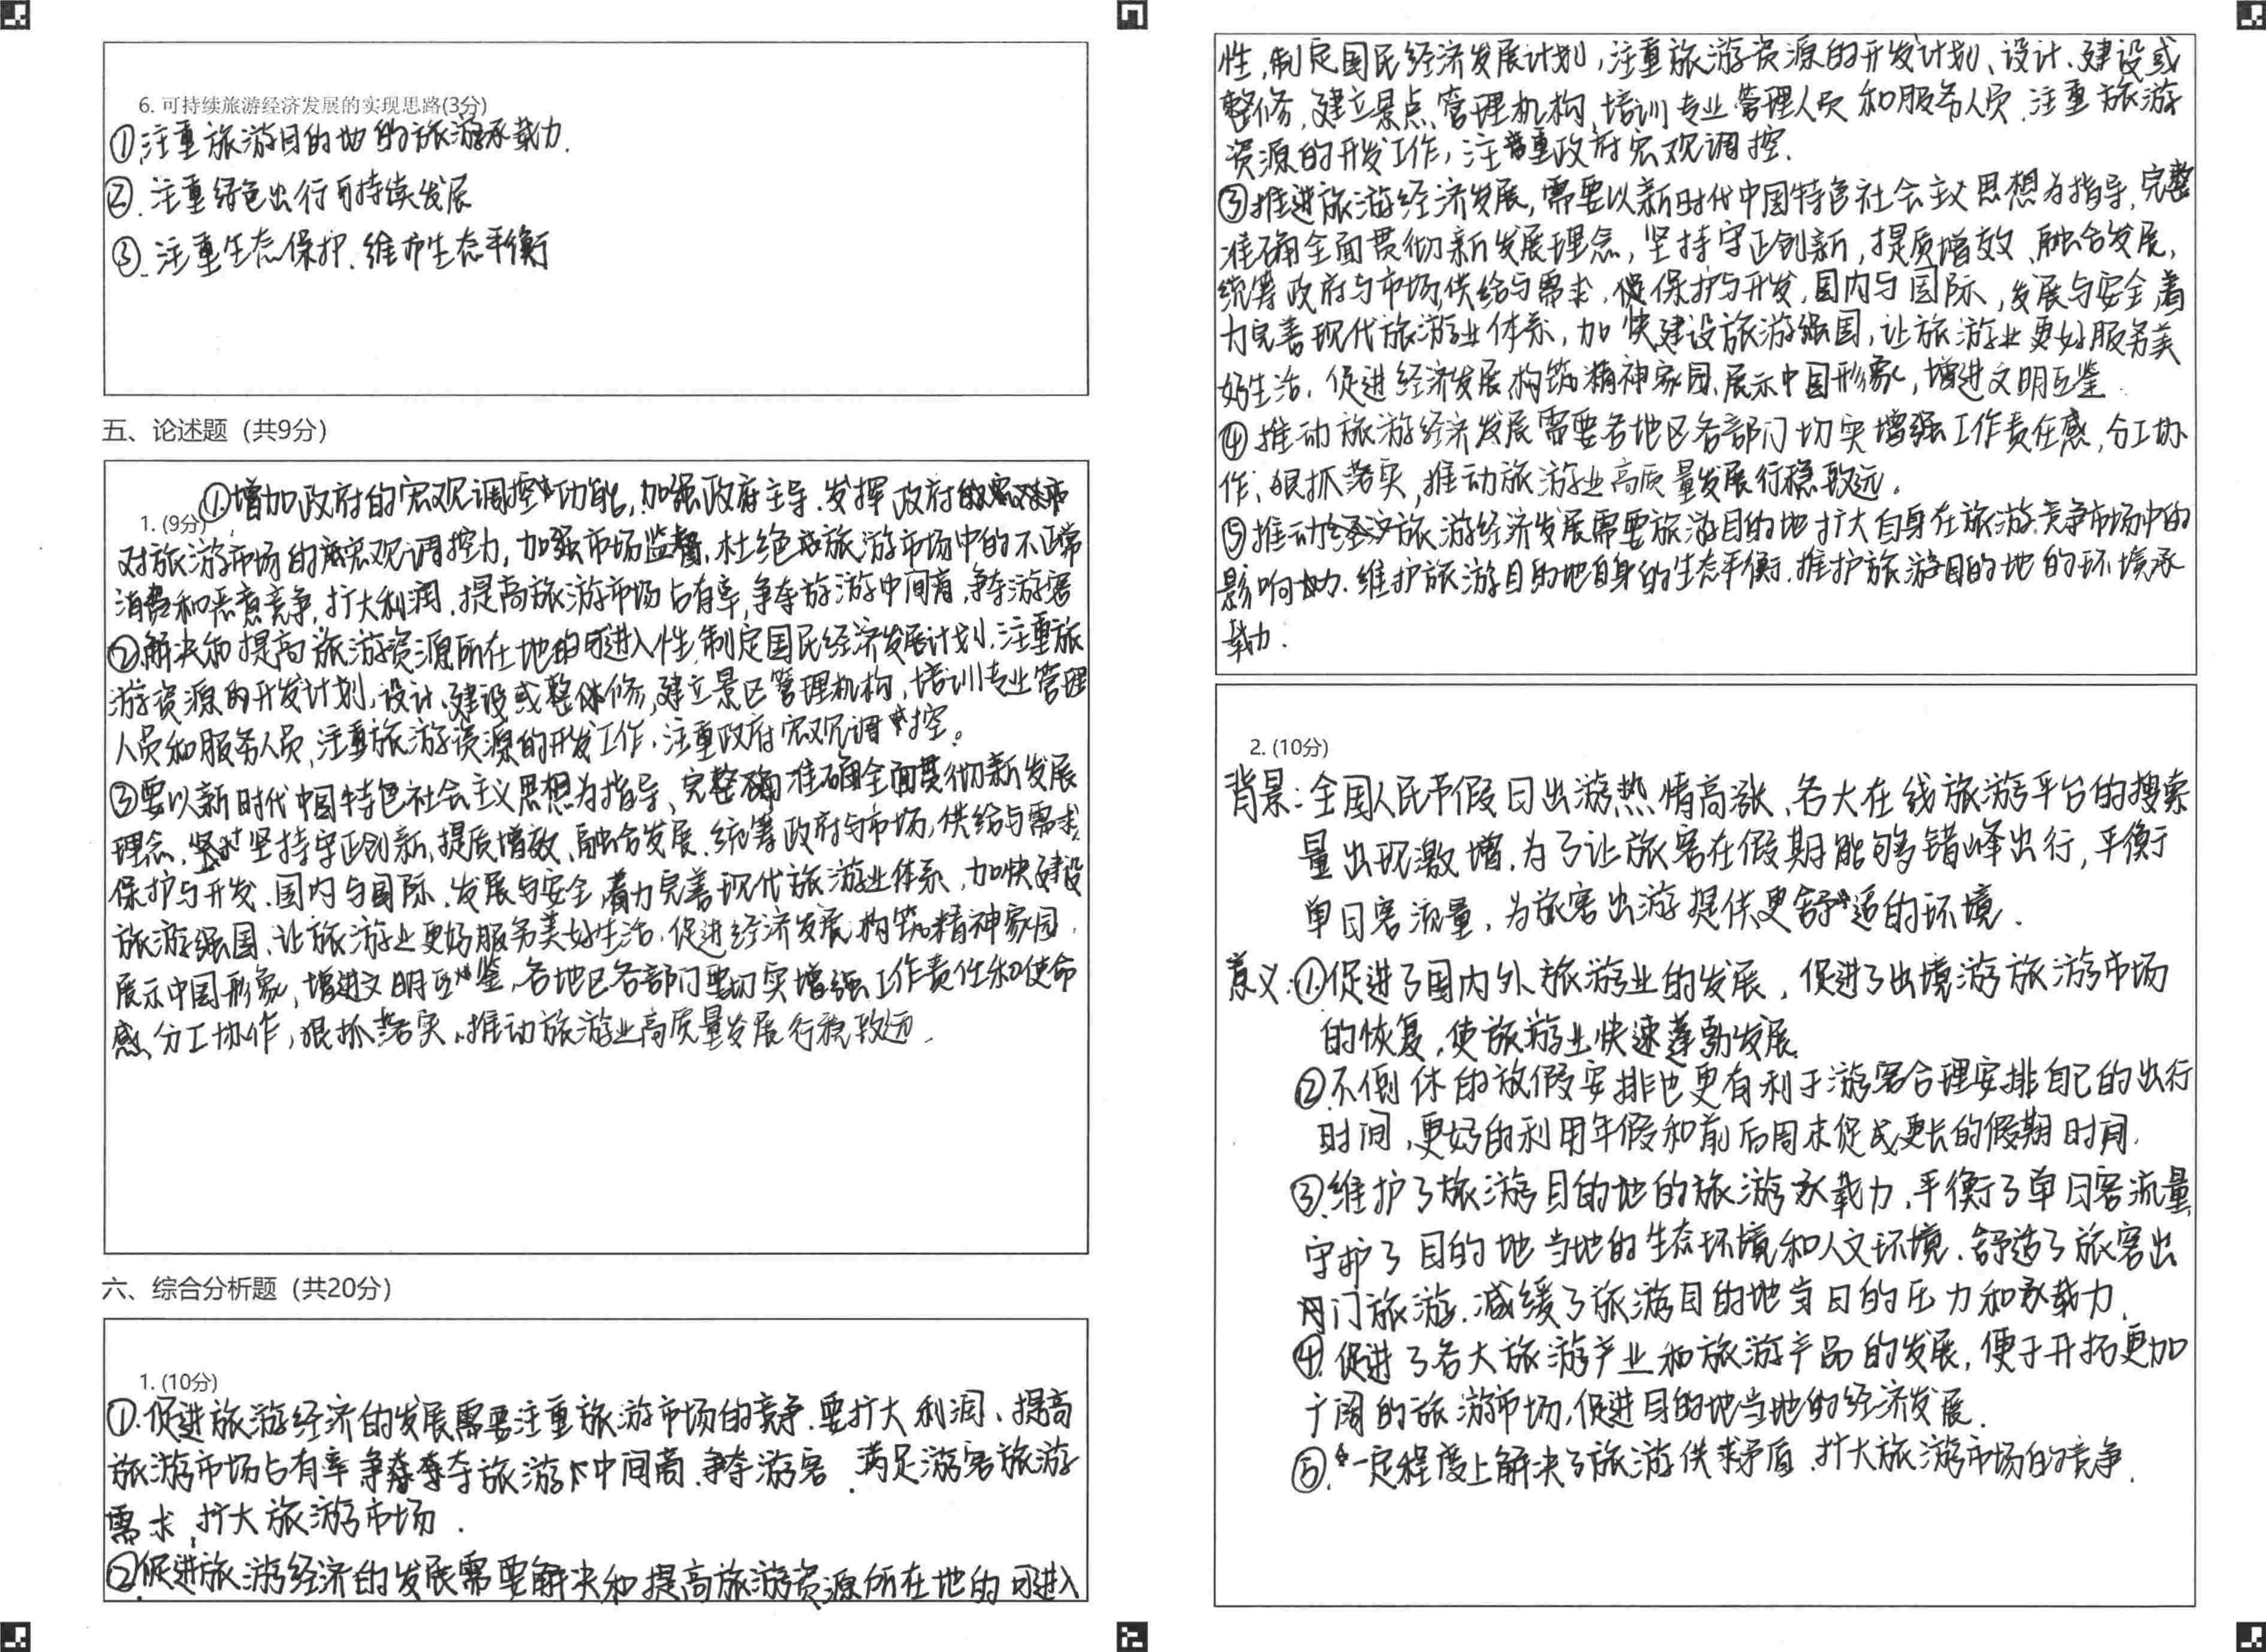 6. 可持续旅游经济发展的实现思路(3分)
①.注重旅游目的地的旅游承载力.
②.注重绿色出行可持续发展
③.注重生态保护.维护生态平衡
五、论述题（共9分）
①.增加政府的宏观调控功能,加强政府主导.发挥政府
1. (9分)
对旅游市场的宏观调控力,加强市场监督.杜绝旅游市场中的不正常
消费和恶意竞争.扩大利润.提高旅游市场占有率,争夺旅游中间商,争夺游客
②.解决和提高旅游资源所在地的可进入性,制定国民经济发展计划.注重旅
游资源的开发计划,设计、建设或整修,建立景区管理机构,培训专业管理
人员和服务人员,注重旅游资源的开发工作.注重政府宏观调控。
③要以新时代中国特色社会主义思想为指导、完整准确全面贯彻新发展
理念.坚持守正创新、提质增效、融合发展.统筹政府与市场,供给与需求,
保护与开发、国内与国际.发展与安全,着力完善现代旅游业体系,加快建设
旅游强国.让旅游业更好服务美好生活.促进经济发展.构筑精神家园.
展示中国形象,增进文明互鉴,各地区各部门要切实增强工作责任和使命
感,分工协作,狠抓落实.推动旅游业高质量发展行稳致远.
六、综合分析题（共20分）
1. (10分)
①.促进旅游经济的发展需要注重旅游市场的竞争.要扩大利润、提高
旅游市场占有率 争夺旅游中间商.争夺游客.满足游客旅游
需求,扩大旅游市场.
②促进旅游经济的发展需要解决和提高旅游资源所在地的可进入
性,制定国民经济发展计划,注重旅游资源的开发计划、设计.建设或
整修,建立景点管理机构,培训专业管理人员和服务人员.注重旅游
资源的开发工作,注重政府宏观调控.
③推进旅游经济发展,需要以新时代中国特色社会主义思想为指导,完整
准确全面贯彻新发展理念,坚持守正创新,提质增效、融合发展,
统筹政府与市场,供给与需求,保护与开发,国内与国际,发展与安全,着
力完善现代旅游业体系,加快建设旅游强国,让旅游业更好服务美
好生活.促进经济发展,构筑精神家园,展示中国形象,增进文明互鉴.
④推动旅游经济发展需要各地区各部门切实增强工作责任感,分工协
作,狠抓落实,推动旅游业高质量发展行稳致远。
⑤推动旅游经济发展需要旅游目的地扩大自身在旅游竞争市场中的
影响力.维护旅游目的地自身的生态平衡.维护旅游目的地的环境承
载力.
2. (10分)
背景:全国人民节假日出游热情高涨、各大在线旅游平台的搜索
量出现激增.为了让旅客在假期能够错峰出行,平衡于
单日客流量,为旅客出游提供更舒适的环境.
意义:①促进了国内外旅游业的发展,促进了出境游旅游市场
的恢复,使旅游业快速蓬勃发展.
②.不倒休的放假安排也更有利于游客合理安排自己的出行
时间,更好的利用年假和前后周末促成更长的假期时间.
③.维护了旅游目的地的旅游承载力.平衡了单日客流量,
守护了目的地当地的生态环境和人文环境.舒适了旅客出
门旅游.减缓了旅游目的地当日的压力和承载力.
④.促进了各大旅游产业和旅游产品的发展,便于开拓更加
广阔的旅游市场,促进目的地当地的经济发展.
⑤.一定程度上解决了旅游供求矛盾.扩大旅游市场的竞争.